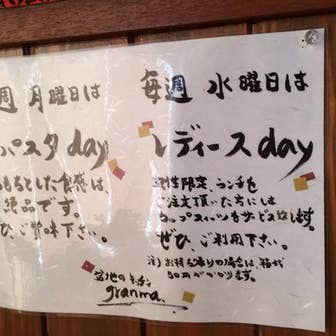 毎週 水曜日は
レディースday
女性限定、ランチを
ご注文頂いた方には
カップスイーツをサービス致します。
ぜひ、ご利用下さい。
注)お持ち帰りの場合は箱代
50円がかかります。
週 月曜日は
パスタday
もちもちとした食感は
絶品です。
ひ、ご賞味下さい。
granma.